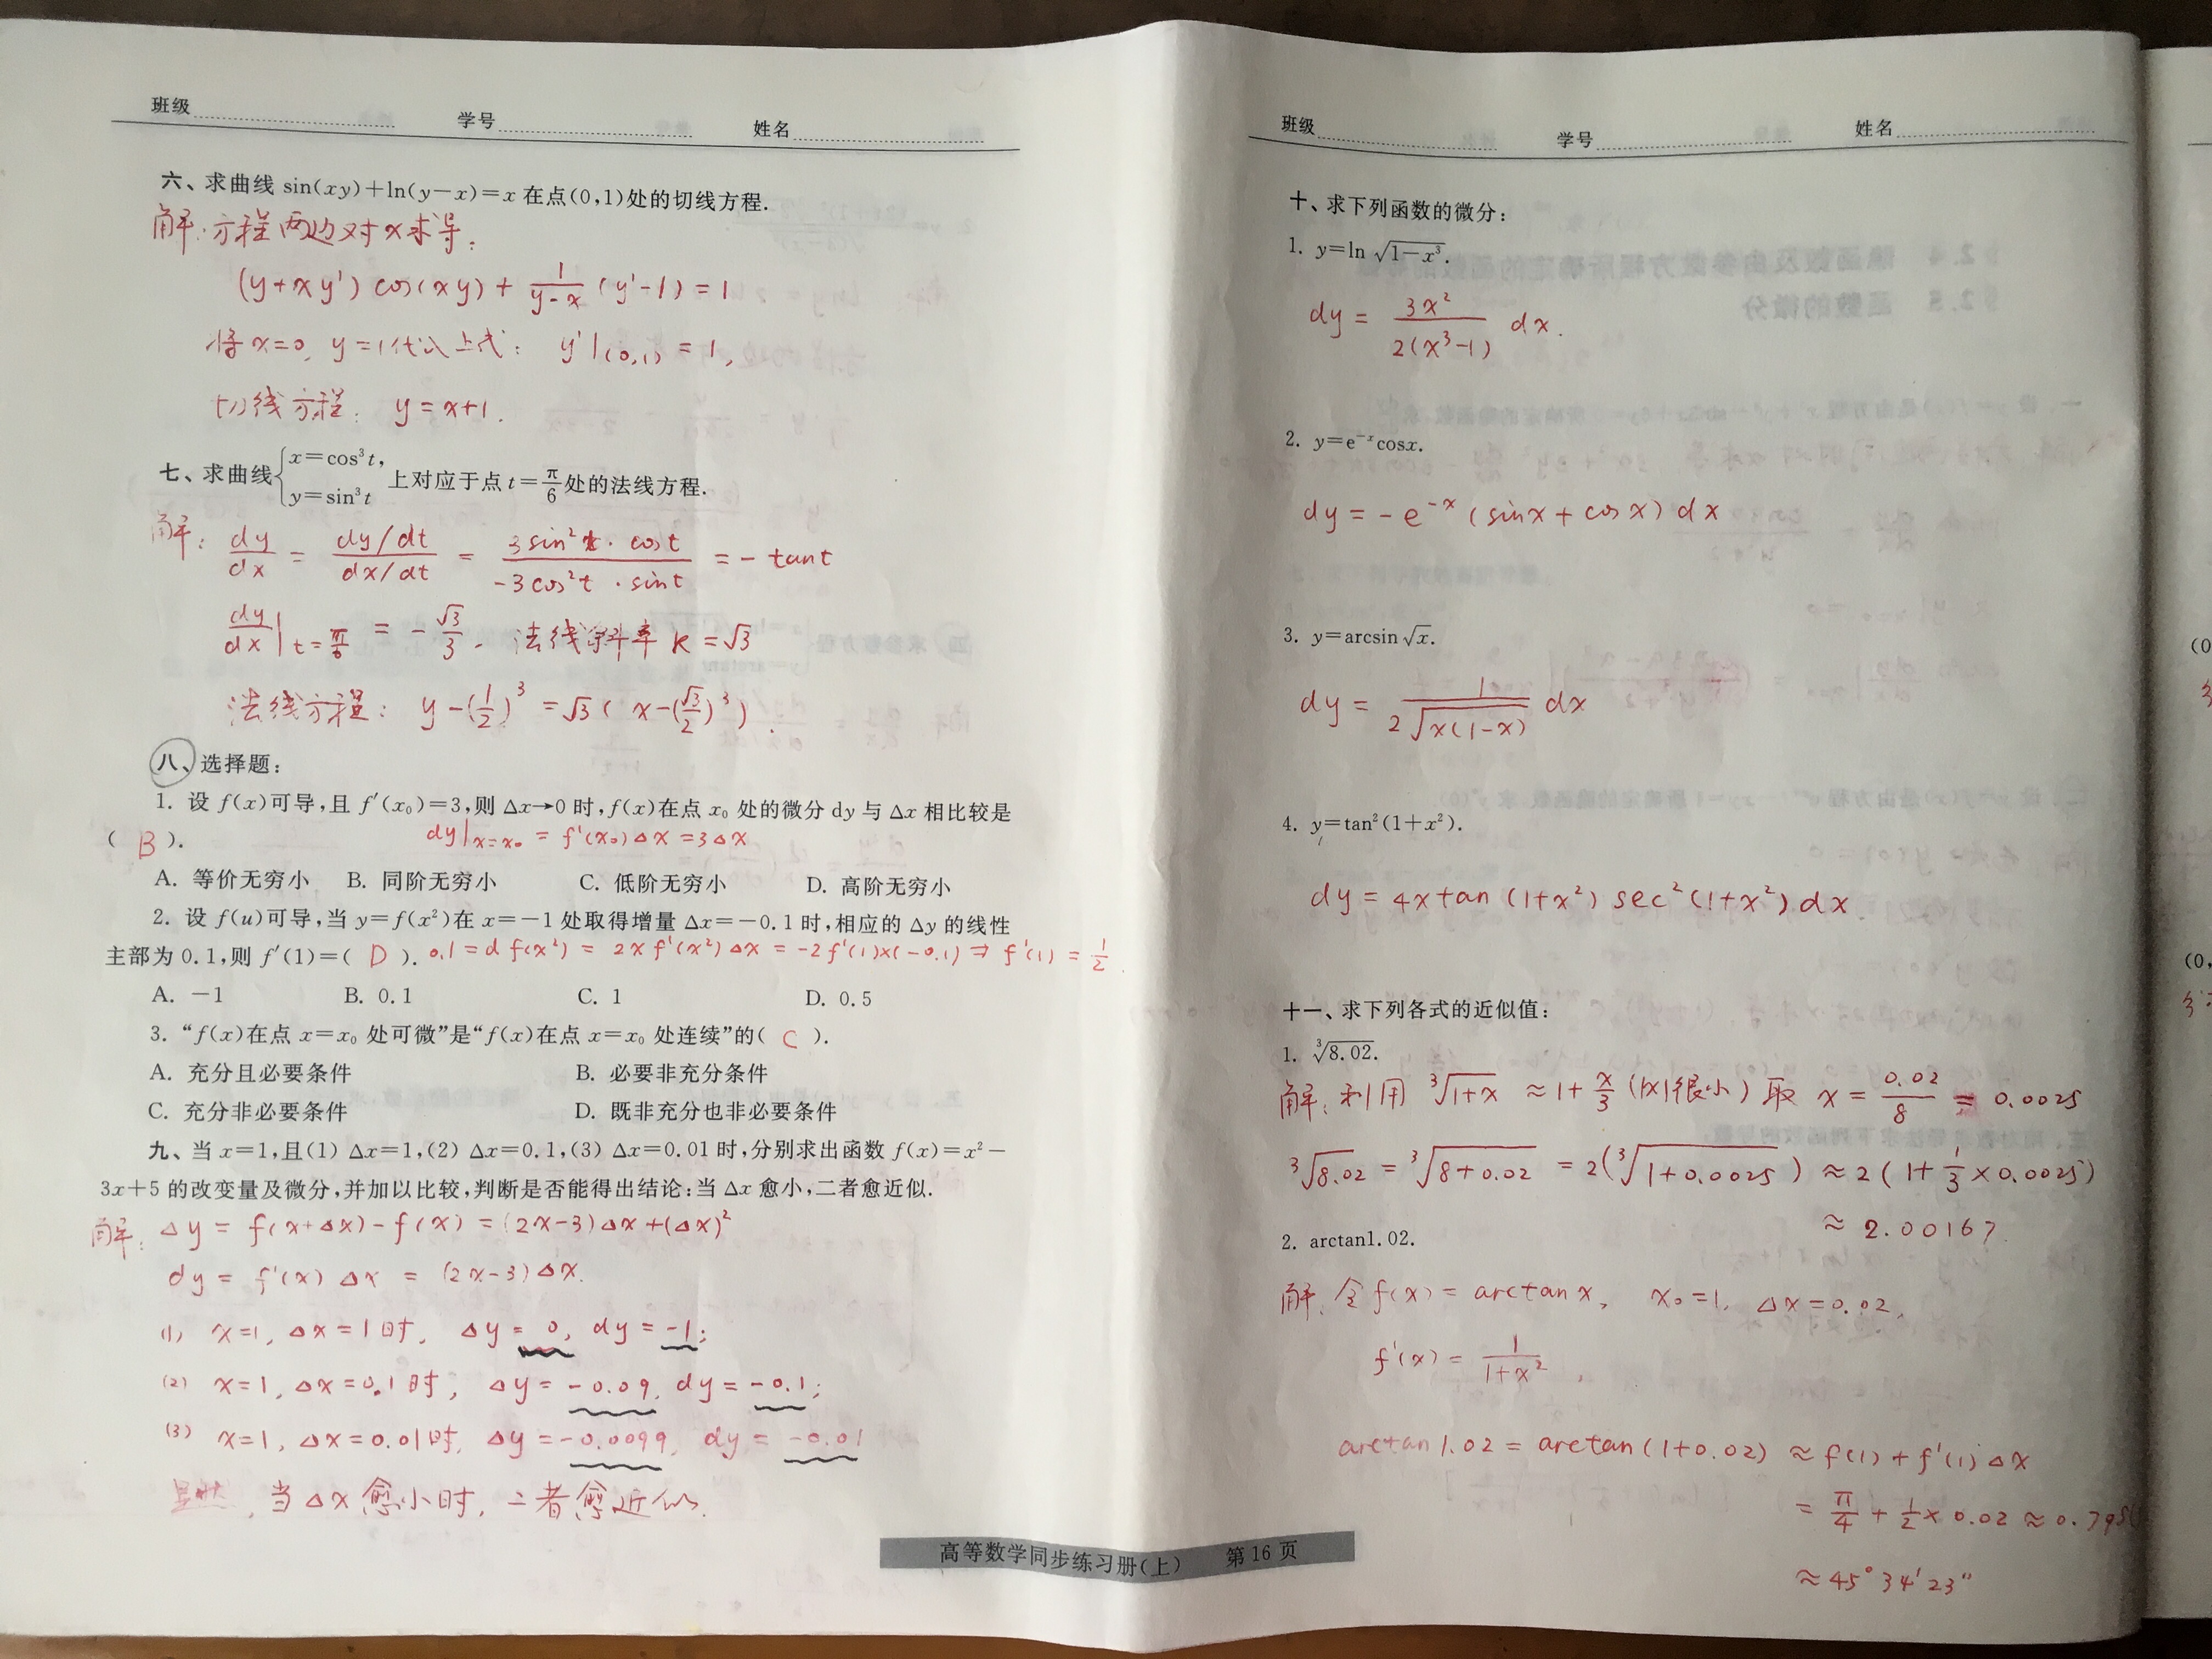 班级 学号 姓名
六、求曲线 sin(xy)+ln(y−x)=x 在点(0,1)处的切线方程.
解:方程两边对x求导:
(y+xy')cos(xy)+\frac{1}{y-x}(y'-1)=1
将x=0, y=1代入上式: y'|_{(0,1)}=1,
切线方程: y=x+1.
七、求曲线{x=cos³t, y=sin³t 上对应于点 t=\frac{π}{6}处的法线方程.
解: \frac{dy}{dx} = \frac{dy/dt}{dx/dt} = \frac{3sin²t·cost}{-3cos²t·sint} = -tant
\frac{dy}{dx}|_{t=\frac{π}{6}} = -\frac{√3}{3}. 法线斜率 k=√3
法线方程: y-(\frac{1}{2})³=√3(x-(\frac{√3}{2})³).
八、选择题:
1. 设 f(x)可导,且 f′(x₀)=3,则 Δx→0 时,f(x)在点 x₀ 处的微分 dy 与 Δx 相比较是
( B ). dy|_{x=x₀} = f'(x₀)Δx = 3Δx
A. 等价无穷小 B. 同阶无穷小 C. 低阶无穷小 D. 高阶无穷小
2. 设 f(u)可导,当 y=f(x²)在 x=−1 处取得增量 Δx=−0.1 时,相应的 Δy 的线性
主部为 0.1,则 f′(1)=( D ). 0.1=d f(x²) = 2x f'(x²)Δx = -2f'(1)×(-0.1) ⇒ f'(1) = \frac{1}{2}
A. −1 B. 0.1 C. 1 D. 0.5
3. “f(x)在点 x=x₀ 处可微”是“f(x)在点 x=x₀ 处连续”的( C ).
A. 充分且必要条件 B. 必要非充分条件
C. 充分非必要条件 D. 既非充分也非必要条件
九、当 x=1,且(1) Δx=1,(2) Δx=0.1,(3) Δx=0.01 时,分别求出函数 f(x)=x²−
3x+5 的改变量及微分,并加以比较,判断是否能得出结论:当 Δx 愈小,二者愈近似.
解: Δy = f(x+Δx)-f(x) = (2x-3)Δx+(Δx)²
dy = f'(x)Δx = (2x-3)Δx.
(1) x=1, Δx=1时, Δy=0, dy=-1;
(2) x=1, Δx=0.1时, Δy=-0.09, dy=-0.1;
(3) x=1, Δx=0.01时, Δy=-0.0099, dy=-0.01
显然,当Δx愈小时,二者愈近似.
班级 学号 姓名
十、求下列函数的微分:
1. y=ln√(1−x³).
dy = \frac{3x²}{2(x³-1)} dx.
2. y=e⁻ˣcosx.
dy = -e⁻ˣ(sinx+cosx)dx
3. y=arcsin√x.
dy = \frac{1}{2√(x(1-x))} dx
4. y=tan²(1+x²).
dy = 4xtan(1+x²)sec²(1+x²)dx.
十一、求下列各式的近似值:
1. ∛8.02.
解:利用 ∛(1+x) ≈ 1+\frac{x}{3} (|x|很小) 取 x = \frac{0.02}{8} = 0.0025
∛8.02 = ∛(8+0.02) = 2(∛(1+0.0025)) ≈ 2(1+\frac{1}{3}×0.0025)
≈ 2.00167.
2. arctan1.02.
解:令 f(x) = arctanx, x₀=1, Δx=0.02,
f'(x) = \frac{1}{1+x²},
arctan1.02 = arctan(1+0.02) ≈ f(1)+f'(1)Δx
= \frac{π}{4}+\frac{1}{2}×0.02 ≈
≈ 45°34′23″
高等数学同步练习册(上) 第 16 页
(0
(0,